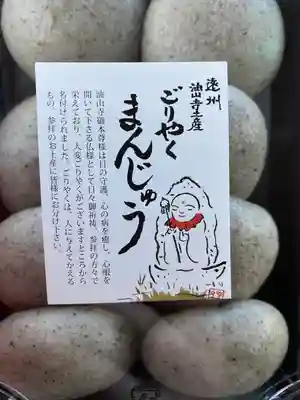 遠州
油山寺土産
ごりやく
まんじゅう
油山寺御本尊様は目の守護、心の病を癒し、心眼を
開いて下さる仏様として日々御祈祷、参拝の方々で
栄えており、大変ごりやくがございますところから
名付けられました。ごりやくは、人に与えてかえる
もの、参拝のお土産に皆様にお分け下さい。